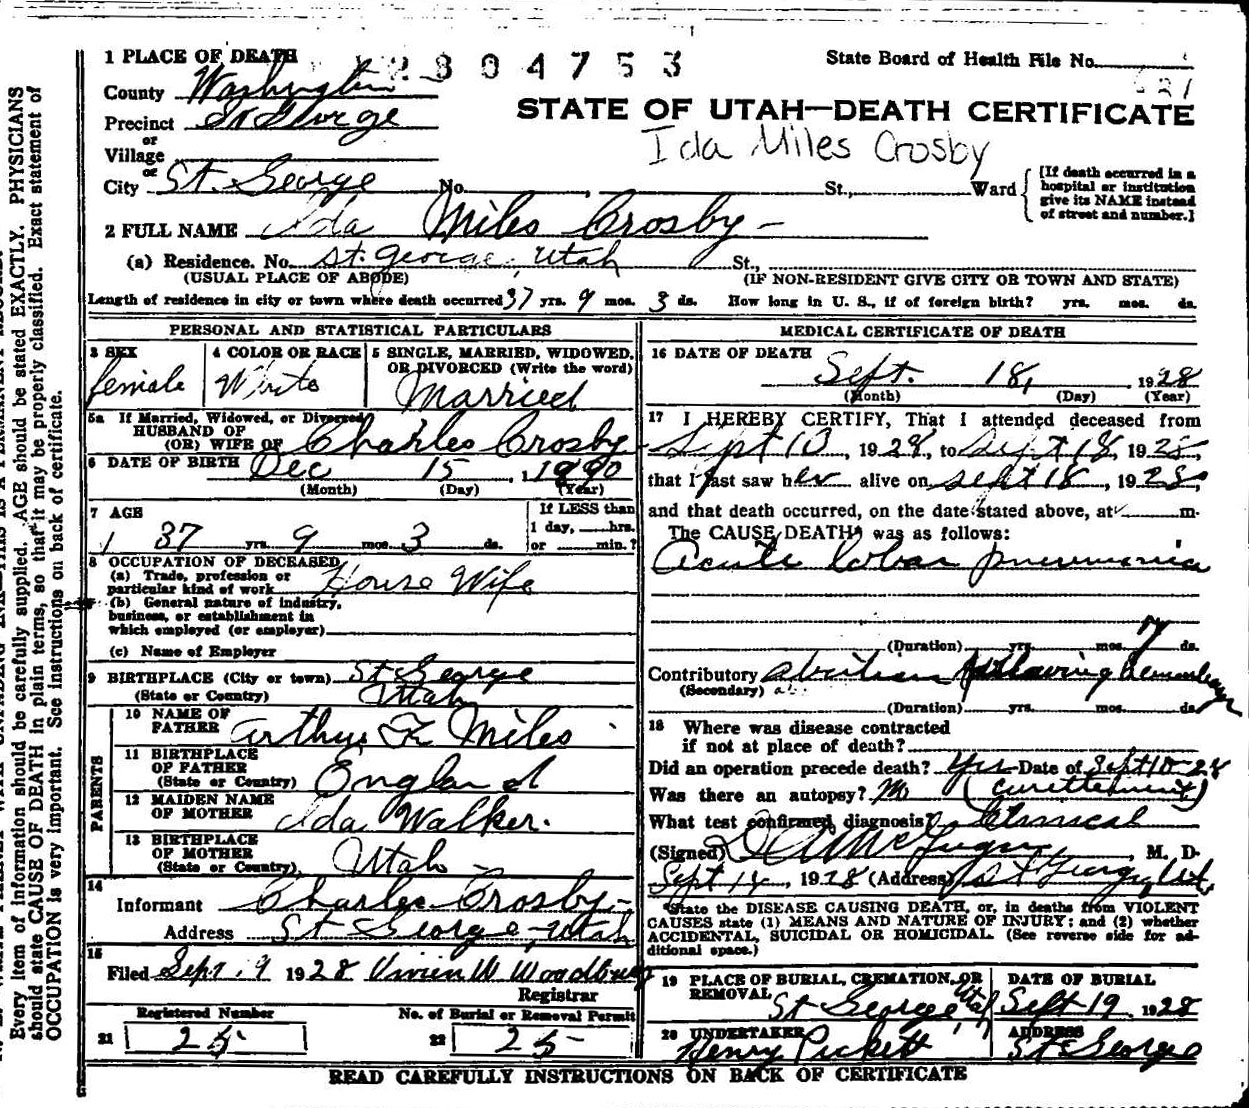 1 PLACE OF DEATH 2304753 State Board of Health File No.
County Washington
Precinct St George
or
Village
or
City St. George No. , St., Ward
STATE OF UTAH—DEATH CERTIFICATE
Ida Miles Crosby
[If death occurred in a
hospital or institution
give its NAME instead
of street and number.]
2 FULL NAME Ida Miles Crosby -
(a) Residence. No. St. George, Utah St.,
(USUAL PLACE OF ABODE) (IF NON-RESIDENT GIVE CITY OR TOWN AND STATE)
Length of residence in city or town where death occurred 37 yrs. 9 mos. 3 ds. How long in U. S., if of foreign birth? yrs. mos. ds.
PERSONAL AND STATISTICAL PARTICULARS
3 SEX
female
4 COLOR OR RACE
White
5 SINGLE, MARRIED, WIDOWED,
OR DIVORCED (Write the word)
Married
5a If Married, Widowed, or Divorced
HUSBAND OF
(OR) WIFE OF Charles Crosby
6 DATE OF BIRTH Dec 15, 1890
(Month) (Day) (Year)
7 AGE
37 yrs. 9 mos. 3 ds.
If LESS than
1 day, hrs.
or min.?
8 OCCUPATION OF DECEASED
(a) Trade, profession or
particular kind of work House Wife
(b) General nature of industry,
business, or establishment in
which employed (or employer)
(c) Name of Employer
9 BIRTHPLACE (City or town) St George
(State or Country) Utah
PARENTS
10 NAME OF
FATHER Arthur F. Miles
11 BIRTHPLACE
OF FATHER
(State or Country) England
12 MAIDEN NAME
OF MOTHER Ida Walker.
13 BIRTHPLACE
OF MOTHER
(State or Country) Utah -
14
Informant Charles Crosby -
Address St George - Utah
15
Filed Sept. 9 1928 Vivien W Woodbury
Registrar
Registered Number No. of Burial or Removal Permit
21 25- 22 25-
MEDICAL CERTIFICATE OF DEATH
16 DATE OF DEATH
Sept. 18, 1928
(Month) (Day) (Year)
17 I HEREBY CERTIFY, That I attended deceased from
Sept 10, 1928, to Sept 18, 1928,
that I last saw her alive on Sept 18, 1928,
and that death occurred, on the date stated above, at m.
The CAUSE DEATH was as follows:
Acute lobar pneumonia
(Duration) yrs. mos. 7 ds.
Contributory abortion following hemorrhage
(Secondary)
(Duration) yrs. mos. ds.
18 Where was disease contracted
if not at place of death?
Did an operation precede death? Yes Date of Sept 10-28
Was there an autopsy? No (curettement)
What test confirmed diagnosis? Clinical
(Signed) , M. D.
Sept 18, 1928 (Address) St George, Utah
State the DISEASE CAUSING DEATH, or, in deaths from VIOLENT
CAUSES state (1) MEANS AND NATURE OF INJURY; and (2) whether
ACCIDENTAL, SUICIDAL OR HOMICIDAL. (See reverse side for ad-
ditional space.)
19 PLACE OF BURIAL, CREMATION, OR
REMOVAL
St George Utah
DATE OF BURIAL
Sept 19 1928
20 UNDERTAKER
Henry Pickett
ADDRESS
St George
READ CAREFULLY INSTRUCTIONS ON BACK OF CERTIFICATE
Every item of information should be carefully supplied. AGE should be stated EXACTLY. PHYSICIANS
should state CAUSE OF DEATH in plain terms, so that it may be properly classified. Exact statement of
OCCUPATION is very important. See instructions on back of certificate.